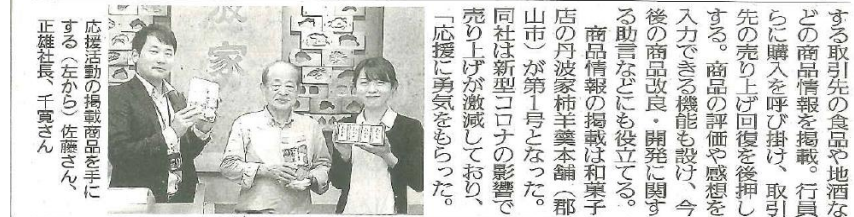 する取引先の食品や地酒な
どの商品情報を掲載。行員
らに購入を呼び掛け、取引
先の売り上げ回復を後押し
する。商品の評価や感想を
入力できる機能も設け、今
後の商品改良・開発に関す
る助言などにも役立てる。
商品情報の掲載は和菓子
店の丹波家柿羊羹本舗（郡
山市）が第1号となった。
同社は新型コロナの影響で
売り上げが激減しており、
「応援に勇気をもらった。
波家
応援活動の掲載商品を手に
する（左から）佐藤さん、
正雄社長、千寛さん